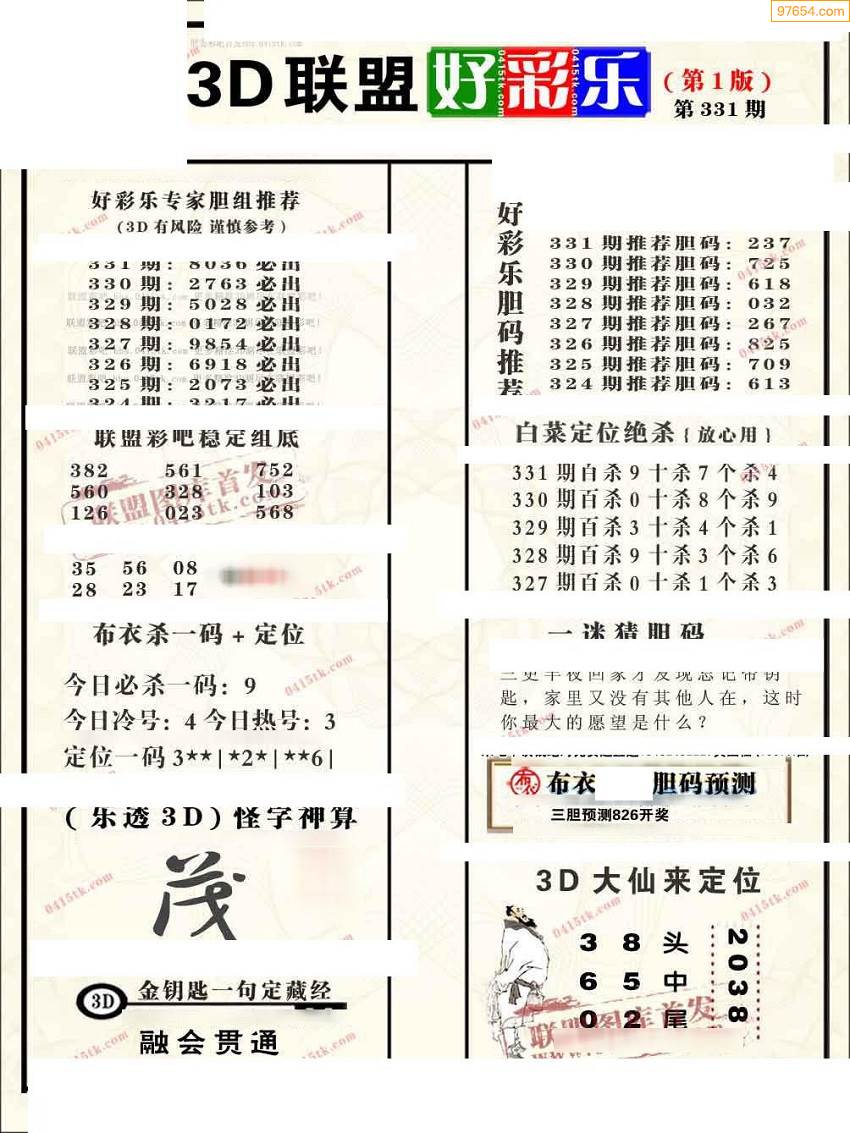 97654.com
3D联盟好彩乐
(第1版)
第331期
好彩乐专家胆组推荐
(3D有风险 谨慎参考)
331期: 8036必出
330期: 2763必出
329期: 5028必出
328期: 0172必出
327期: 9854必出
326期: 6918必出
325期: 2073必出
324期: 3217必出
联盟彩吧稳定组底
382 561 752
560 328 103
126 023 568
35 56 08
28 23 17
布衣杀一码+定位
今日必杀一码: 9
今日冷号: 4 今日热号: 3
定位一码3**|*2*|**6|
(乐透3D)怪字神算
茂
3D 金钥匙一句定藏经
融会贯通
好彩乐胆码推荐
331期推荐胆码: 237
330期推荐胆码: 725
329期推荐胆码: 618
328期推荐胆码: 032
327期推荐胆码: 267
326期推荐胆码: 825
325期推荐胆码: 709
324期推荐胆码: 613
白菜定位绝杀{放心用}
331期百杀9十杀7个杀4
330期百杀0十杀8个杀9
329期百杀3十杀4个杀1
328期百杀9十杀3个杀6
327期百杀0十杀1个杀3
一迷猜胆码
三更半夜回家才发现忘记带钥
匙，家里又没有其他人在，这时
你最大的愿望是什么？
布衣 胆码预测
三胆预测826开奖
3D大仙来定位
3 8 头
6 5 中
0 2 尾
2038
联盟图库首发
0415tk.com